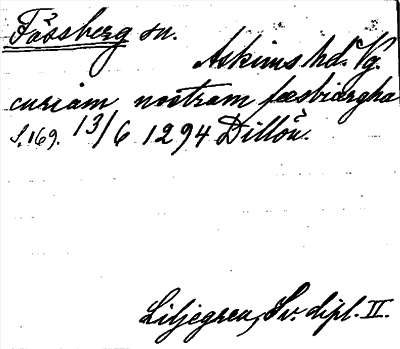 Fässberg sn.
Askims hd. Vg.
curiam nostram fæsbiærgha
S. 169. 13/6 1294 Dillöü.
Liljegren, Sv. dipl. II.